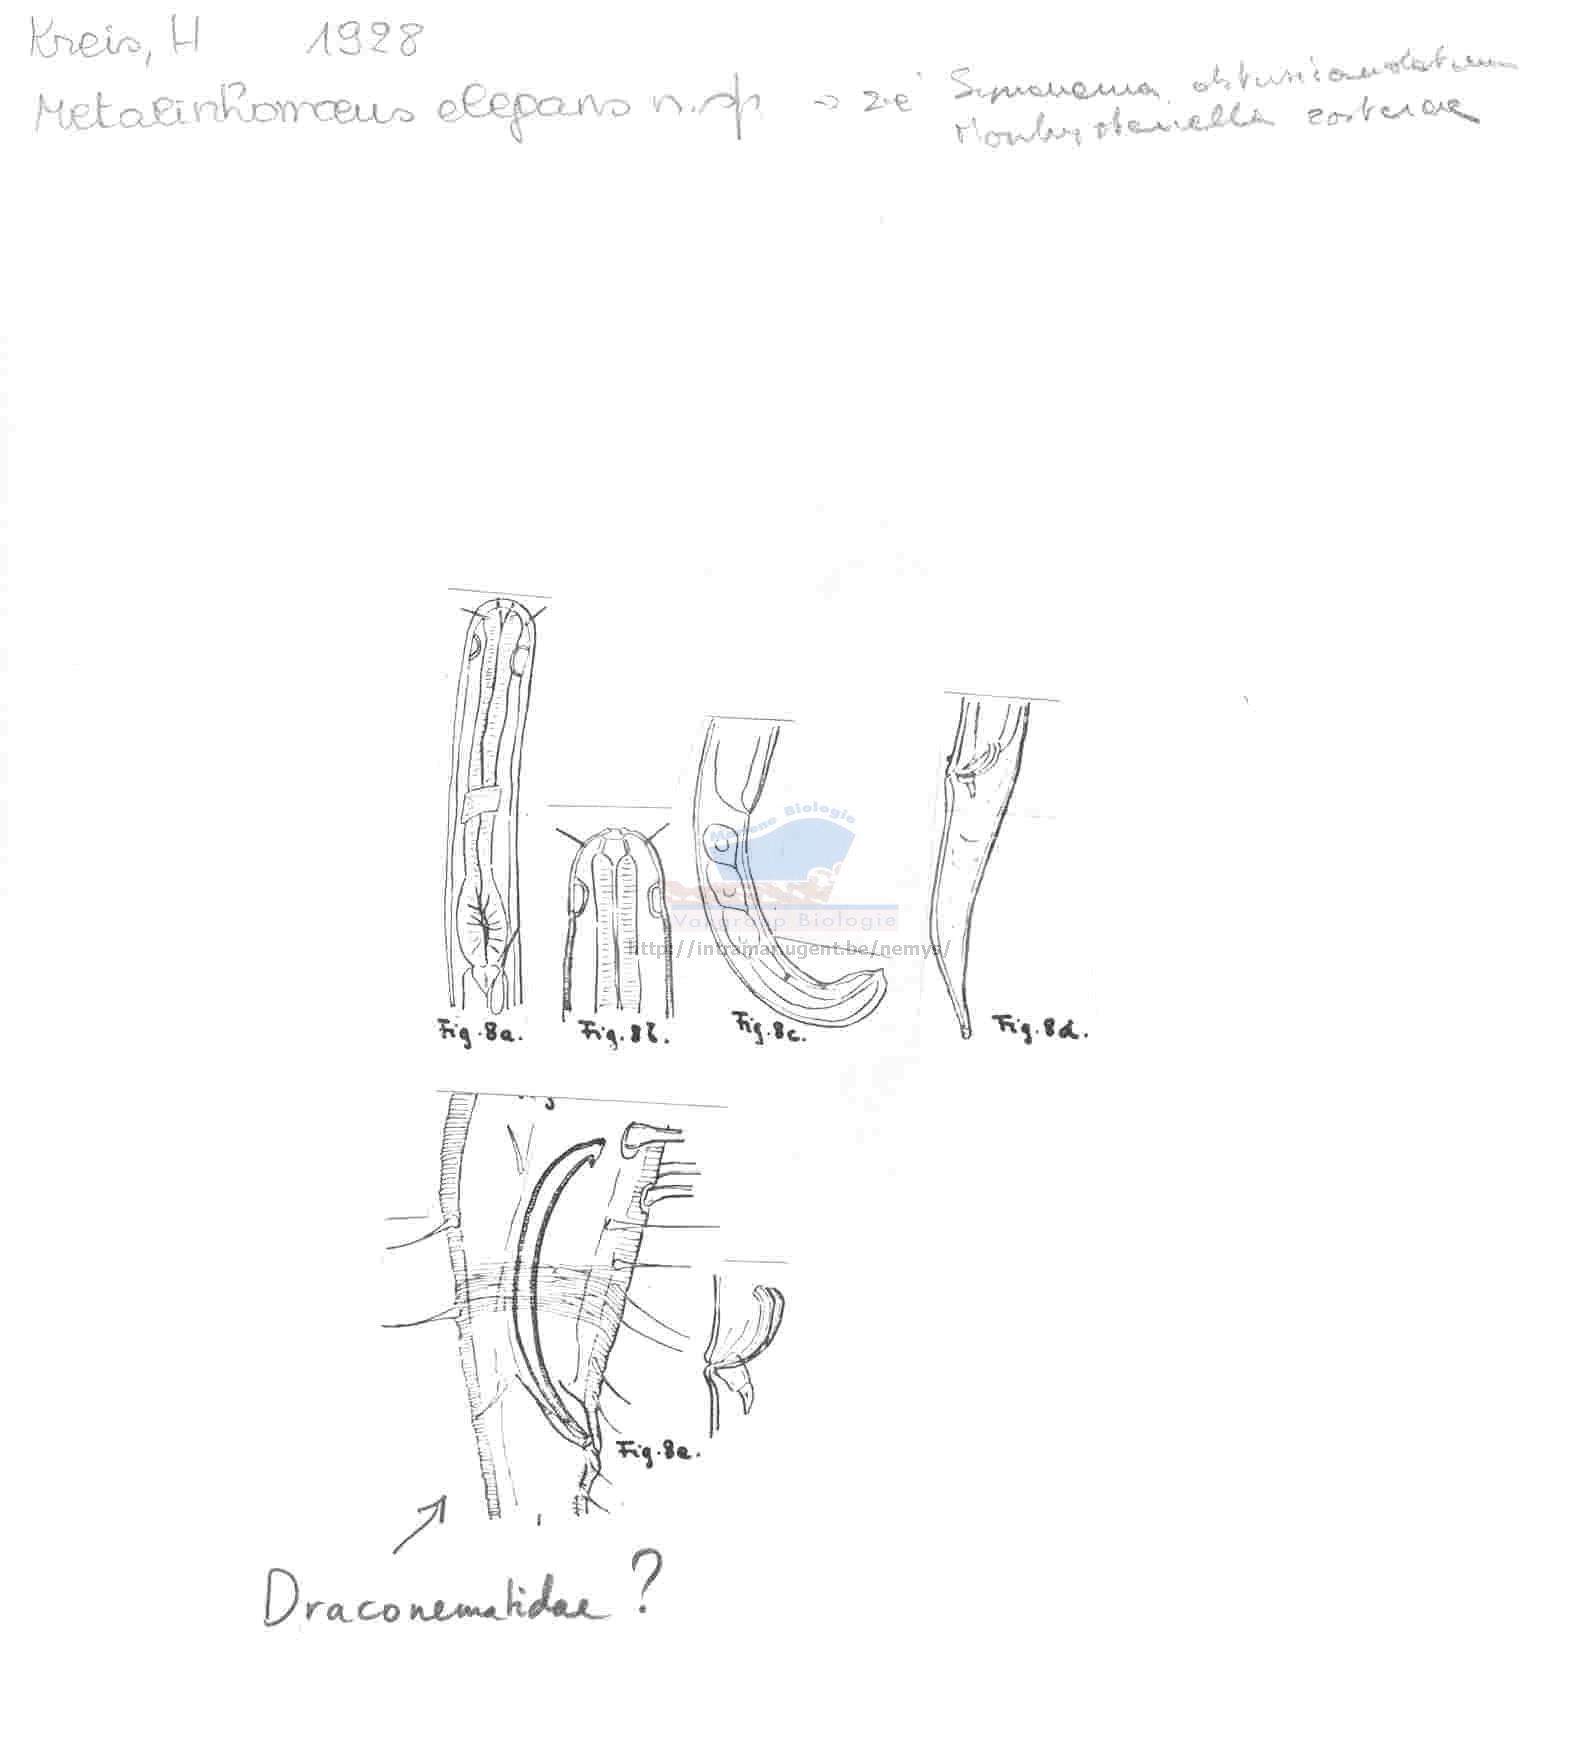 Kreis, H 1928
Metalinhomœus elegans n.sp. → zie Syringonema obtusicaudatum
Monhysteriella zosterae
Mariene Biologie
Vakgroep Biologie
http://intramar.ugent.be/nemys/
Fig. 8a. Fig. 8b. Fig. 8c. Fig. 8d.
Fig. 8e.
Draconematidae ?